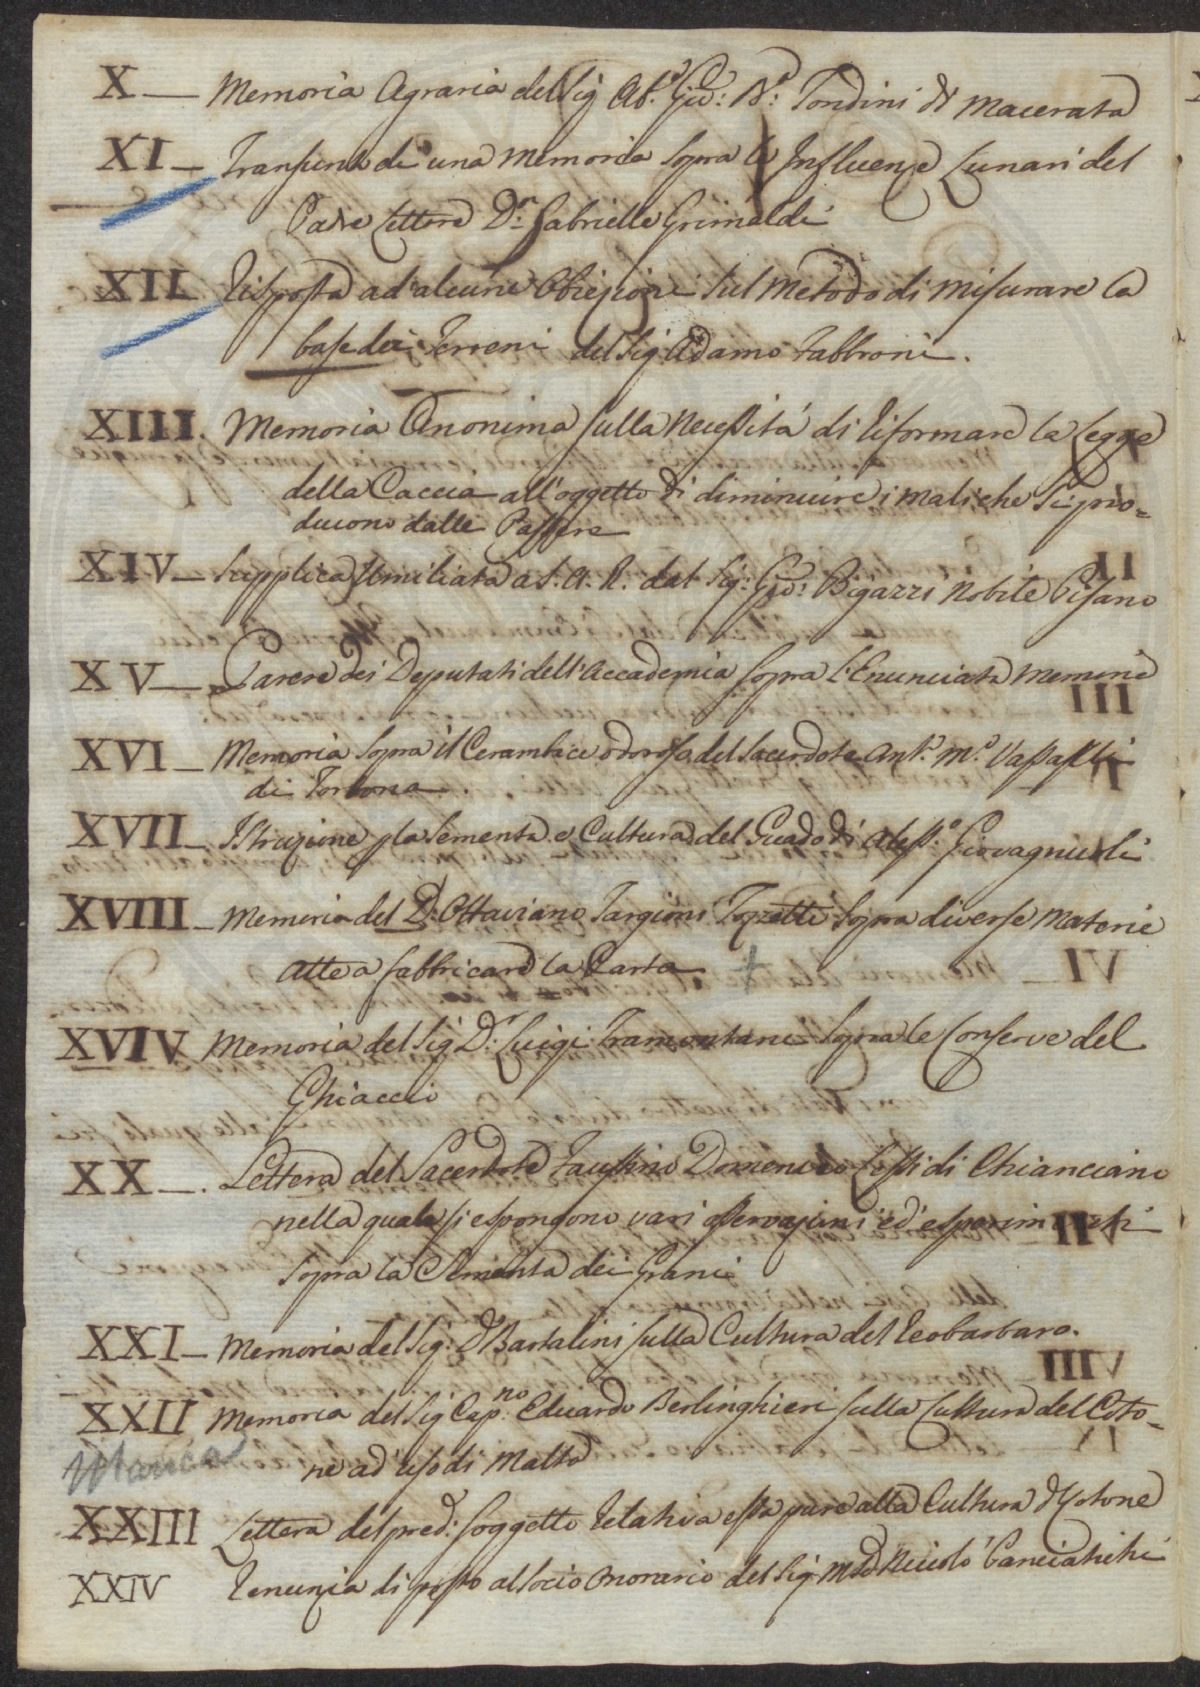 X — Memoria Agraria del Sig Ab.e Gio: B.a Tondini di Macerata
XI — Transunto di una Memoria sopra le Influenze Lunari del
Padre Lettore D.n Gabrielle Grimaldi
XII Risposta ad alcune Obiezioni sul Metodo di Misurare la
base dei Terreni del Sig Adamo Fabbroni.
XIII. Memoria Anonima sulla Necessitá di riformare la Legge
della Caccia all'oggetto di diminuire i mali che si pro=
ducono dalle Passere
XIV — Supplica Umiliata a S. A. R. dal Sig: Gio: Bigazzi Nobile Pisano
XV — Parere dei Deputati dell'Accademia sopra l'Enunciata Memoria
XVI — Memoria sopra il Cerambice odoroso del Sacerdote Ant.o M.a Vassalli
di Tortona.
XVII — Istruzione p la Sementa e Cultura del Guado di Aless.o Giovagnuoli
XVIII — Memoria del D: Ottaviano Targioni Tozzetti sopra diverse Materie
atte a fabbricare la Carta +
XVIV Memoria del Sig D.r Luigi Tramontani sopra le Conserve del
Ghiaccio
XX —. Lettera del Sacerdote Faustino Domenico Lessi di Chianciano
nella quale si espongono vari osservazioni ed'esperimenti
sopra la Sementa dei Grani
XXI — Memoria del Sig: D Bartalini sulla Cultura del Reobarbaro.
XXII Memoria del Sig Cap.no Eduardo Berlinghieri sulla Cultura del Coto=
Manca
ne ad uso di Malta
XXIII Lettera del pred: Soggetto Relativa essa pure alla Cultura di Cotone
XXIV Renunzia di posto al Socio Onorario del Sig Niccoló Panciatichi